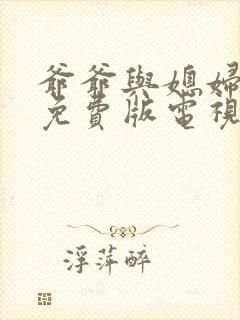 爺爺與媳婦
免費版電視
浮萍醉